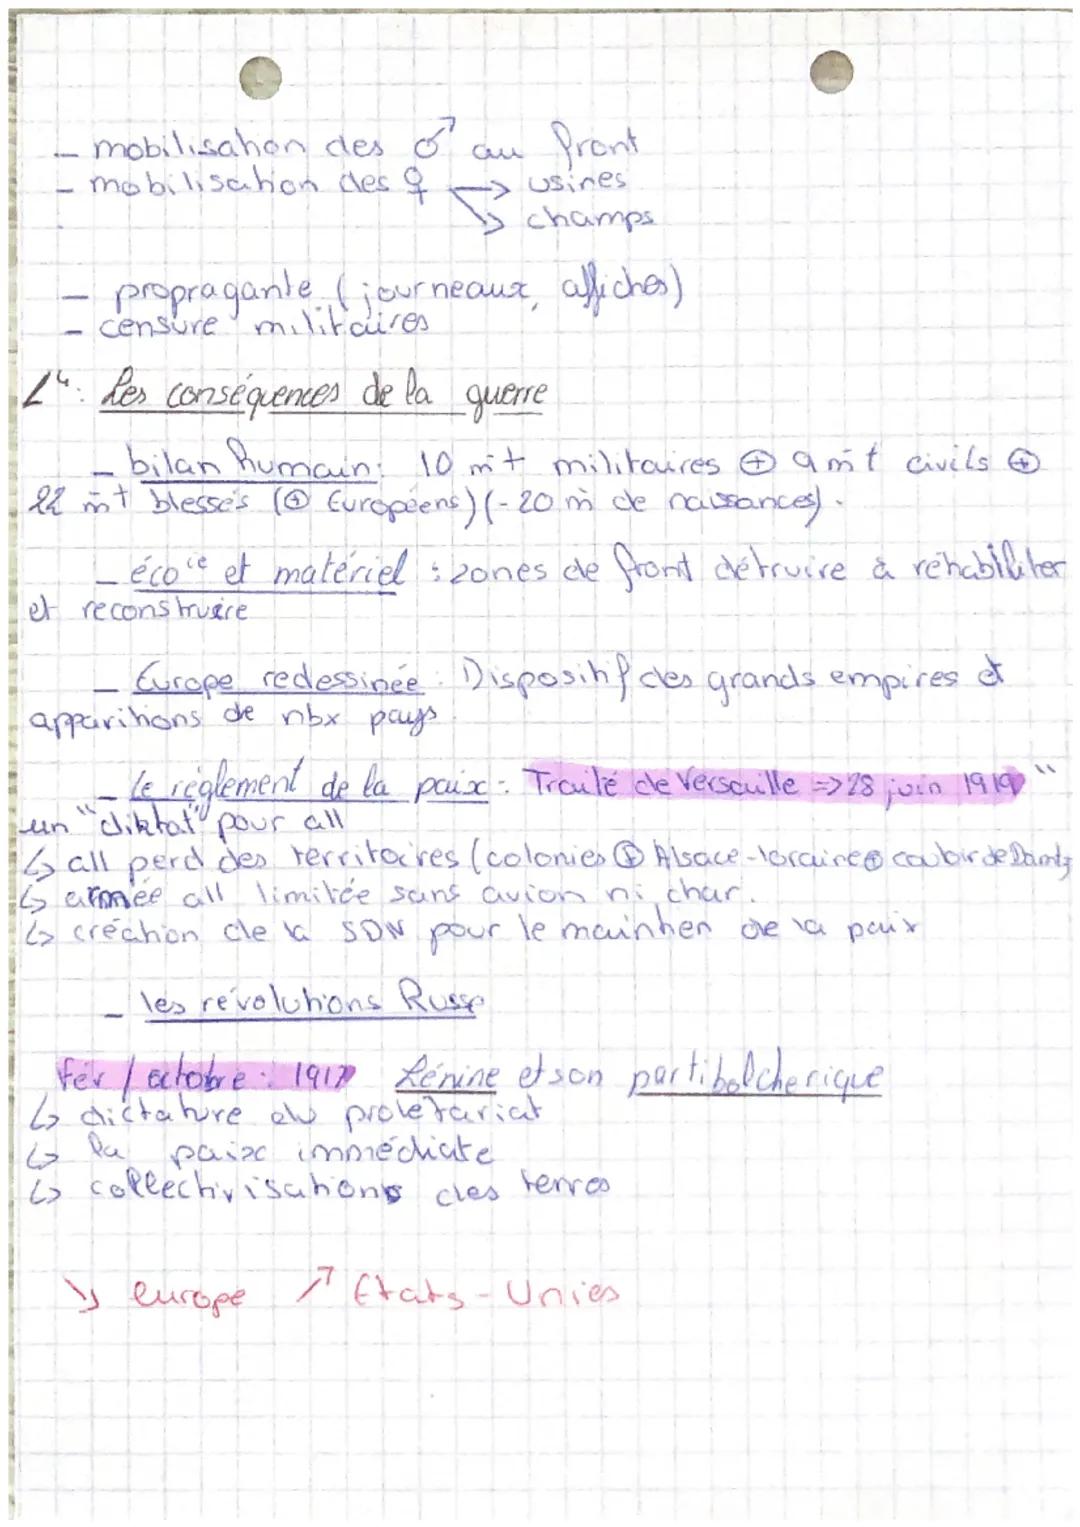 - mobilisation des ♂ au front
- mobilisation des ♀ → usines
↘ champs
- propragante (journeaux, affiches)
- censure militaires
L⁴: Les conséquences de la guerre
- bilan humain: 10 m+ militaires ⊕ 9 m+ civils ⊕
22 m+ blessés (⊕ Européens) (-20 m de naissances).
- éco ie et matériel : zones de front détruire à réhabiliter
et reconstruire
- Europe redessinée : Dispositif des grands empires et
apparitions de nbx pays
- le réglement de la paix : Traité de Versaille => 28 juin 1919 "
un "diktat" pour all
↳ all perd des territoires (colonies ⊕ Alsace-loraine ⊕
↳ armée all limitée sans avion ni char.
↳ création de la SDN pour le maintien de la paix
- les révolutions Russe
Fév / octobre : 1917 Lénine et son parti bolcherique
↳ dictature du prolétariat
↳ la paix immédiate
↳ collectivisations des terres
↘ europe ↗ Etats-Unies